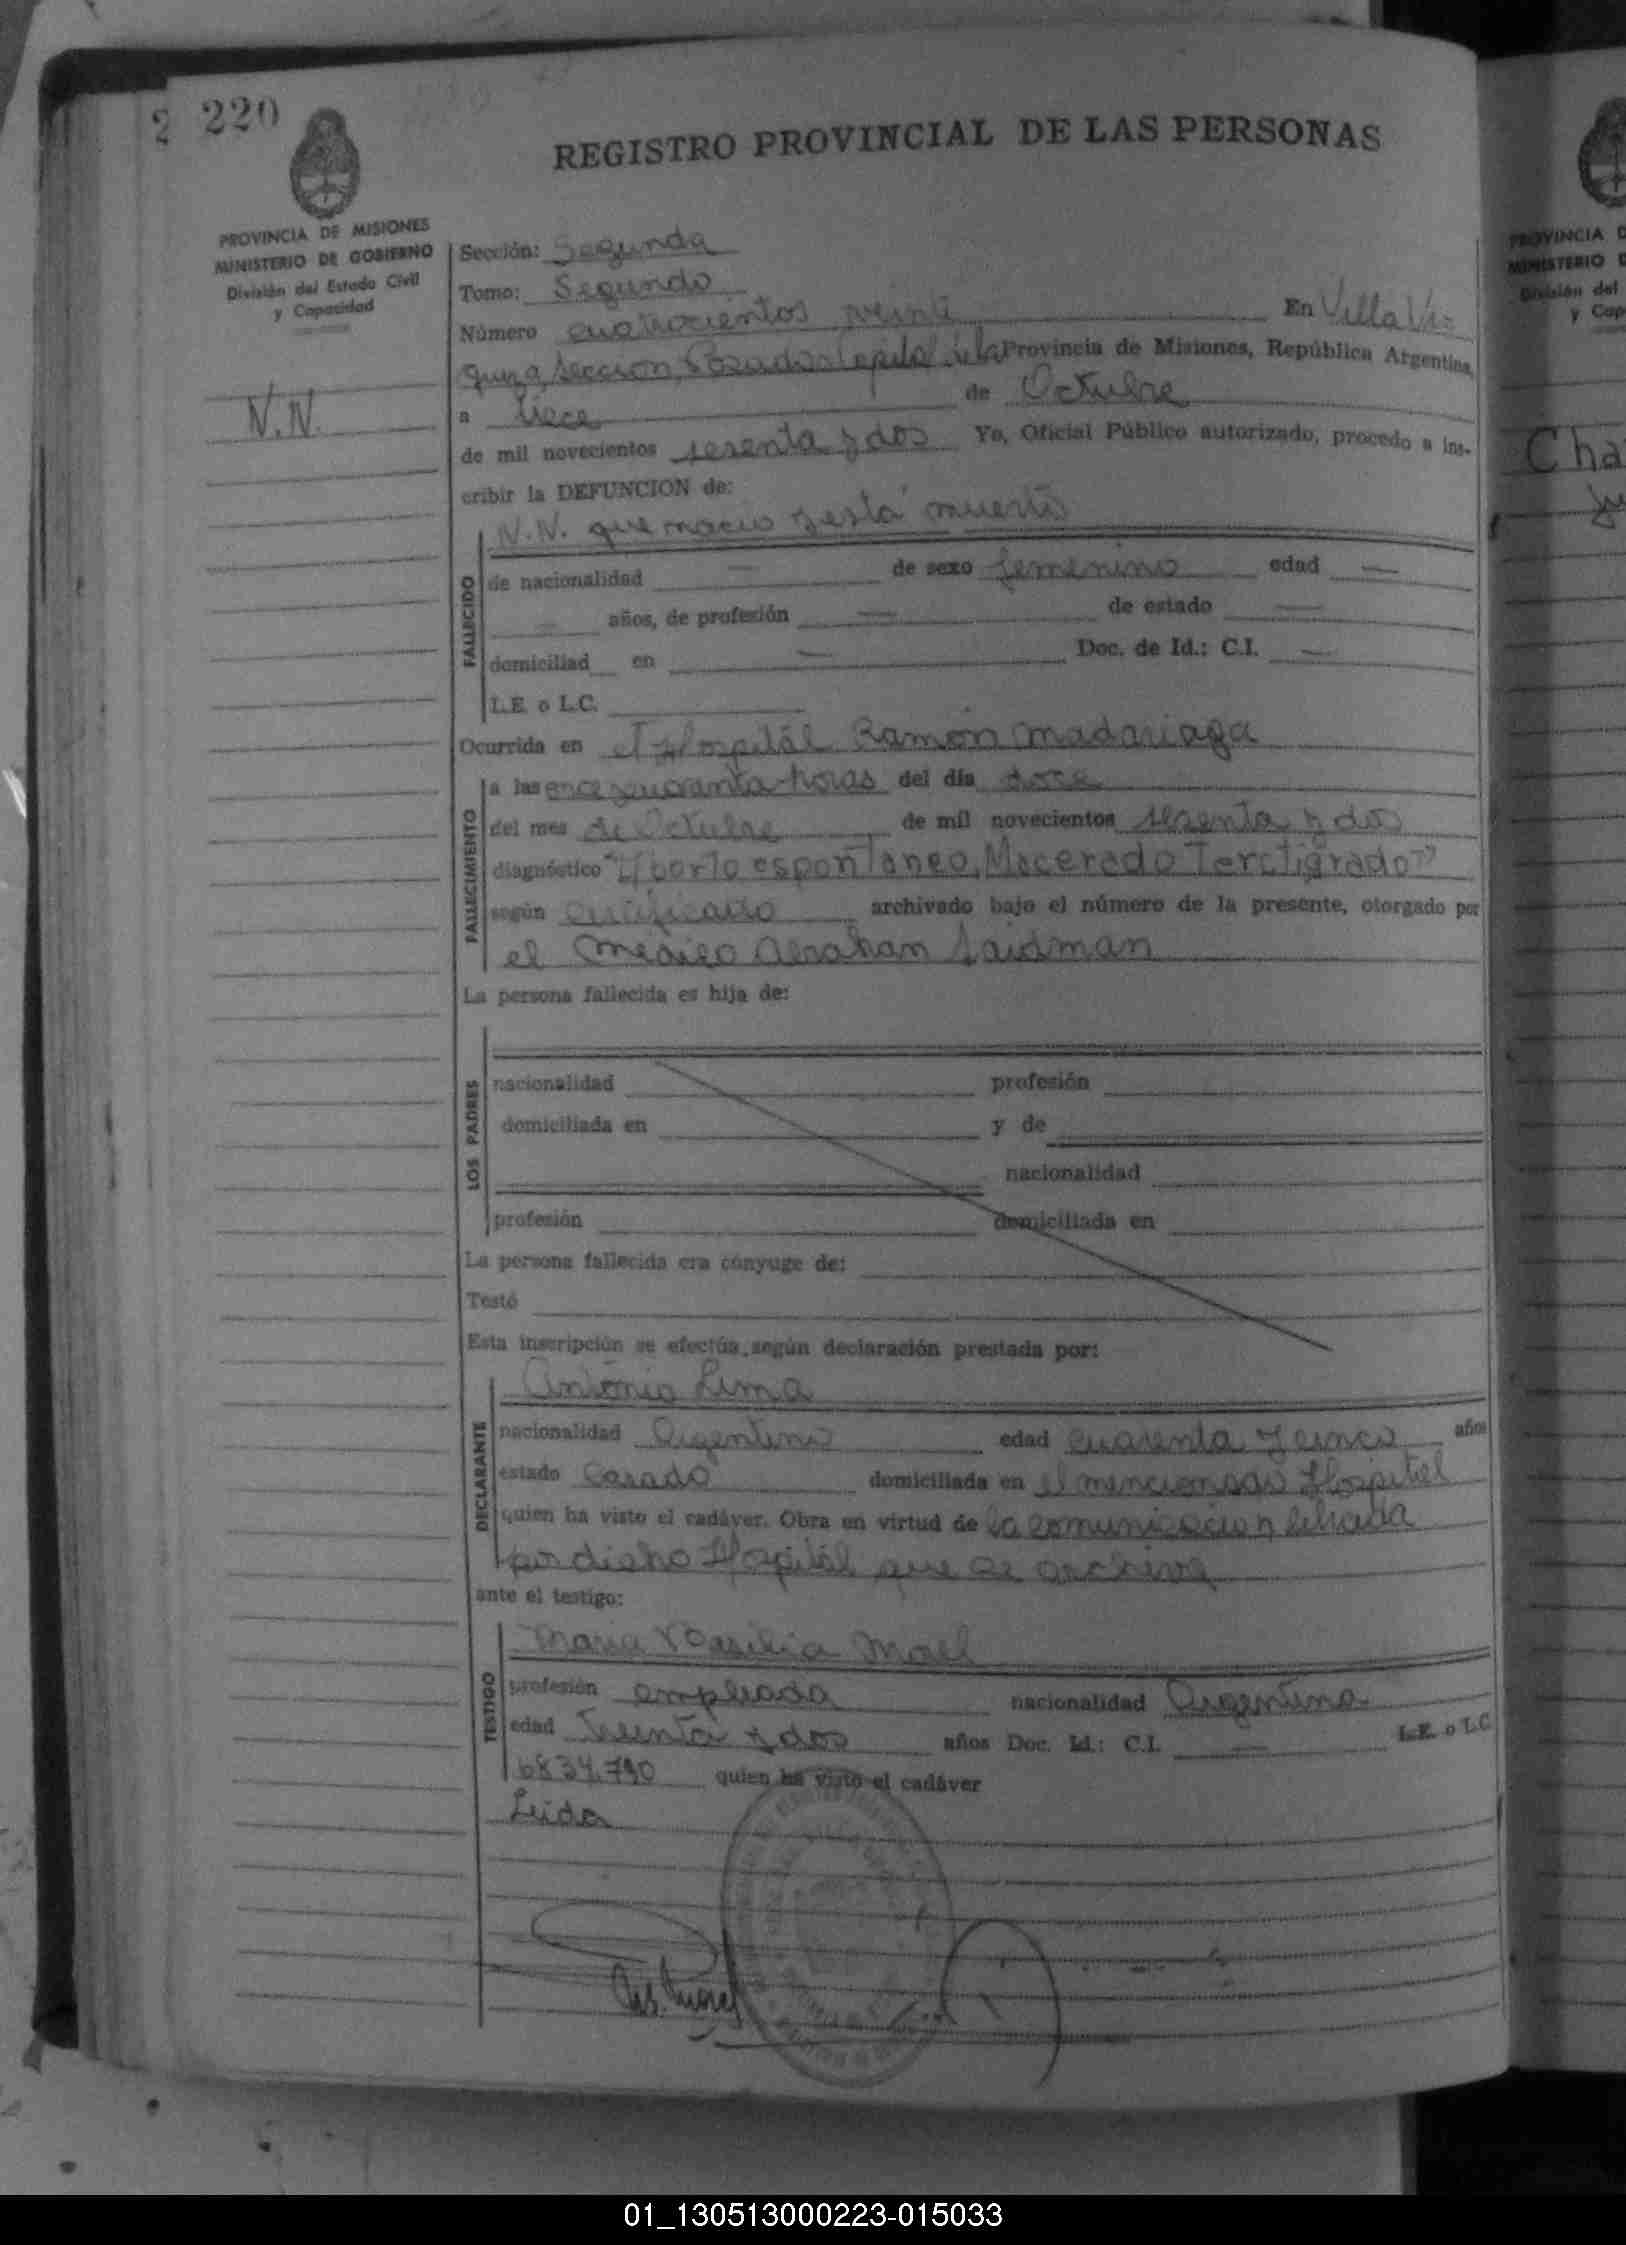 2 220
REGISTRO PROVINCIAL DE LAS PERSONAS
PROVINCIA DE MISIONES
MINISTERIO DE GOBIERNO
División del Estado Civil
y Capacidad
N.N.
Sección: Segunda
Tomo: Segundo
Número cuatrocientos veinte En Villa Vis
Provincia de Misiones, República Argentina,
a trece de Octubre
de mil novecientos sesenta y dos Yo, Oficial Público autorizado, procedo a ins-
cribir la DEFUNCION de:
N.N. que nacio y está muerto
FALLECIDO
de nacionalidad — de sexo femenino edad —
— años, de profesión — de estado —
domiciliad en — Doc. de Id.: C.I. —
L.E. o L.C.
Ocurrida en el Hospitál Ramón Madariaga
FALLECIMIENTO
a las once y cuarenta horas del día doce
del mes de Octubre de mil novecientos sesenta y dos
diagnóstico "Aborto espontaneo, Macerado Tercer grado"
según certificado archivado bajo el número de la presente, otorgado por
el medico Abrahan Saidman
La persona fallecida es hija de:
LOS PADRES
nacionalidad profesión
domiciliada en y de
nacionalidad
profesión domiciliada en
La persona fallecida era cónyuge de:
Testó
Esta inscripción se efectúa según declaración prestada por:
Antonio Lima
DECLARANTE
nacionalidad Argentino edad cuarenta y cinco años
estado Casado domiciliada en el mencionado Hospital
quien ha visto el cadáver. Obra en virtud de la comunicacion librada
por dicho Hospitál que se archiva
ante el testigo:
Maria Basilia
TESTIGO
profesión empleada nacionalidad Argentina
edad treinta y dos años Doc. Id.: C.I. — L.E. o L.C
6834.790 quien ha visto el cadáver
Leida
PROVINCIA D
MINISTERIO D
División del
y Cap
Cha
01_130513000223-015033